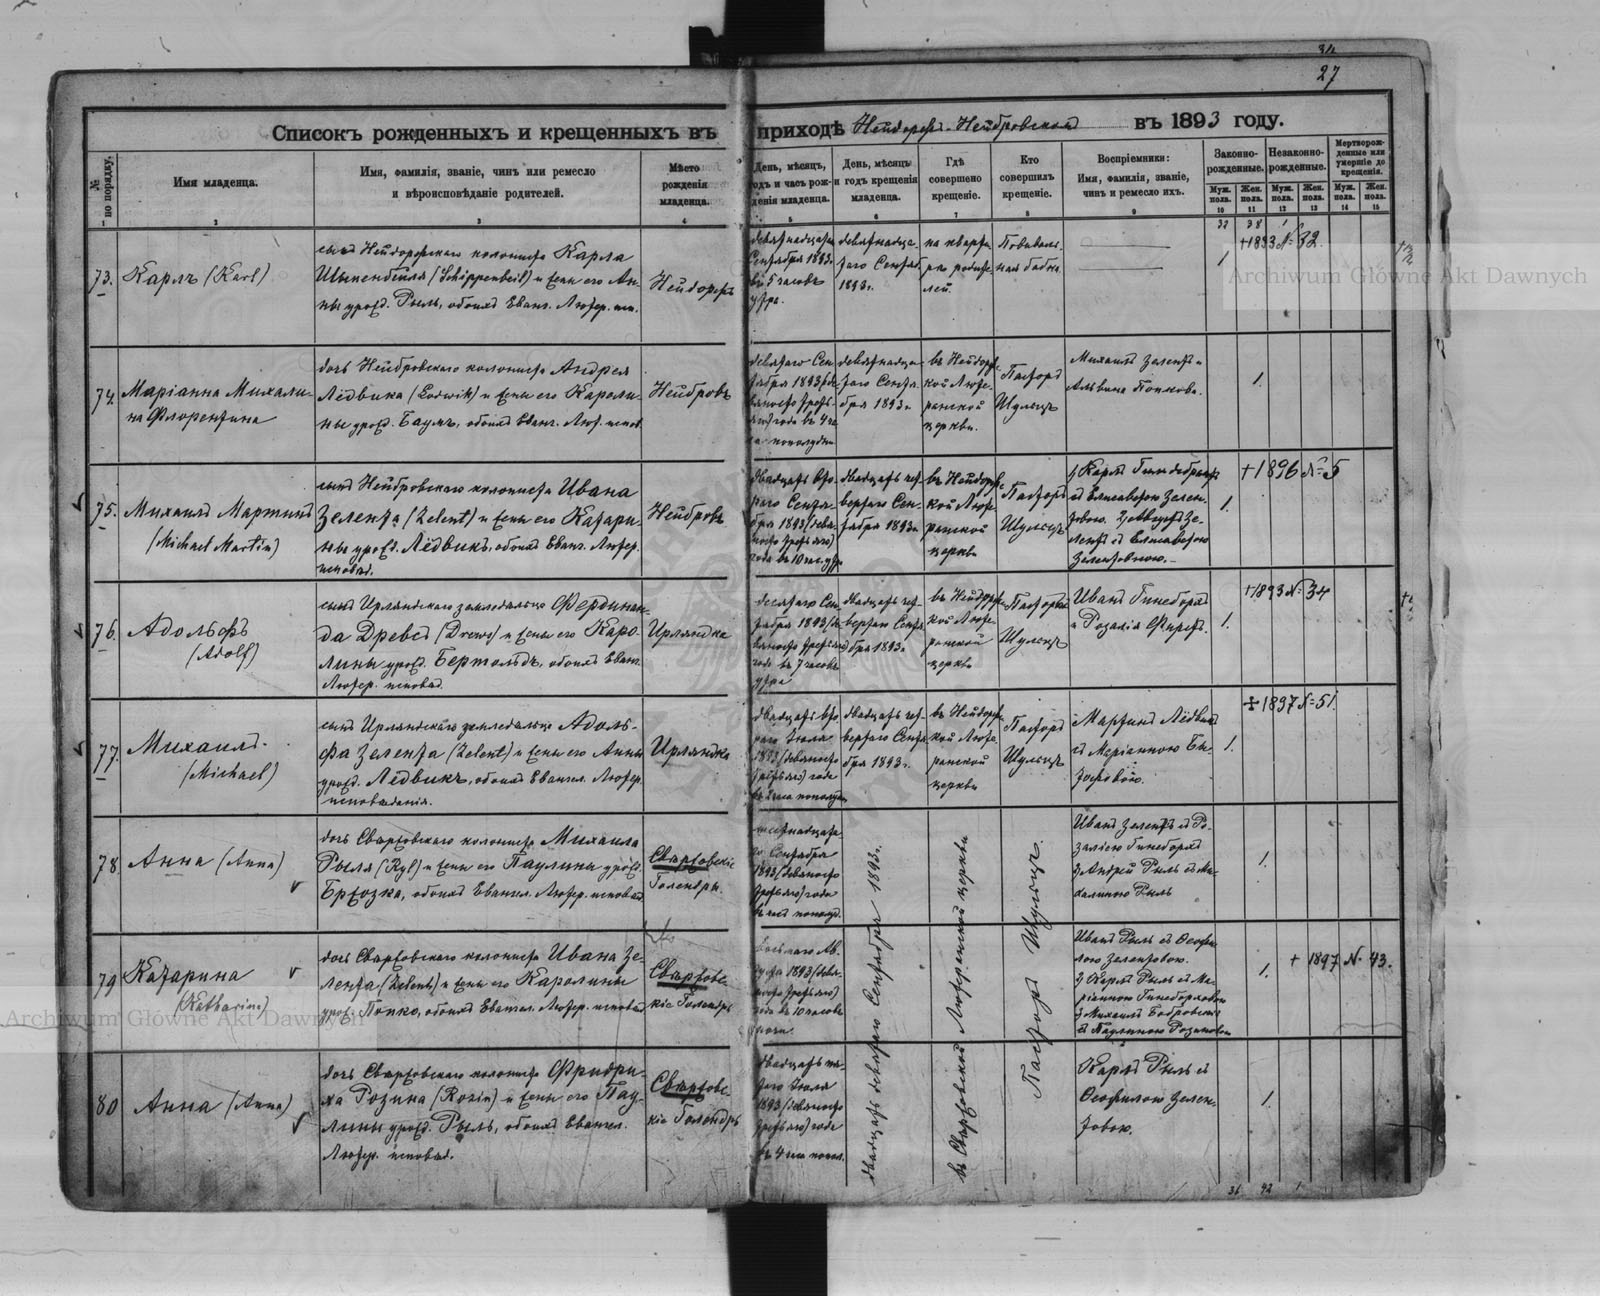 34
27
Списокъ рожденныхъ и крещенныхъ въ приходѣ Нейдорфъ-Нейбровскомъ въ 1893 году.
№ по порядку.
Имя младенца.
Имя, фамилія, званіе, чинъ или ремесло
и вѣроисповѣданіе родителей.
Мѣсто
рожденія
младенца.
День, мѣсяцъ,
годъ и часъ рож-
денія младенца.
День, мѣсяцъ
и годъ крещенія
младенца.
Гдѣ
совершено
крещеніе.
Кто
совершилъ
крещеніе.
Воспріемники:
Имя, фамилія, званіе,
чинъ и ремесло ихъ.
Законно-
рожденные.
Незаконно-
рожденные.
Мертворож-
денные или
умершіе до
крещенія.
Муж.
пола.
Жен.
пола.
Муж.
пола.
Жен.
пола.
Муж.
пола.
Жен.
пола.
1 2 3 4 5 6 7 8 9 10 11 12 13 14 15
32 38 1
73.
Карлъ (Karl)
сынъ Нейдорфскаго колониста Карла
Шыпенбейля (Schippenbeil) и жены его Ан-
ны урожд. Рыль, обоихъ Еванг. Лютер. исп.
Нейдорфъ
девятнадцатаго
Сентября 1893 г.
въ 5 часовъ
утра.
девятнадца-
таго Сентяб.
1893 г.
на кварти-
рѣ родите-
лей.
Повиваль-
ная бабка.
1.
+1893 № 32.
74.
Маріанна Михали-
на Флорентина
дочь Нейбровскаго колониста Андрея
Лёдвика (Lodwik) и жены его Кароли-
ны урожд. Баумъ, обоихъ Еванг. Лют. испов.
Нейбровъ
девятаго Сен-
тября 1893 (де-
вяносто треть-
яго) года въ 4 ча-
са пополудни
девятнадца-
таго Сентя-
бря 1893 г.
въ Нейдорфс-
кой Люте-
ранской
церкви.
Пасторъ
Шульцъ
Михаилъ Зелентъ и
Альвина Попкова.
1.
75.
Михаилъ Мартинъ
(Michael Martin)
сынъ Нейбровскаго колониста Ивана
Зелента (Zelent) и жены его Катари-
ны урожд. Лёдвикъ, обоихъ Еванг. Лютер.
исповѣд.
Нейбровъ
двадцать вто-
раго Сентя-
бря 1893 (девя-
носто третьяго)
года въ 10 час. утра
двадцать чет-
вертаго Сен-
тября 1893 г.
въ Нейдорфс-
кой Люте-
ранской
церкви
Пасторъ
Шульцъ
1) Карлъ Гильдебрантъ
съ Елисаветою Зелен-
товою. 2) Августъ Зе-
лентъ съ Елисаветою
Зелентовою.
1.
+1896 № 5
76.
Адольфъ
(Adolf)
сынъ Ирляндскаго земледѣльца Фердинан-
да Древсъ (Drews) и жены его Каро-
лины урожд. Бертольдъ, обоихъ Еванг.
Лютер. исповѣд.
Ирляндка
десятаго Сен-
тября 1893 (де-
вяносто третьяго)
года въ 7 часовъ
утра
двадцать чет-
вертаго Сентя-
бря 1893 г.
въ Нейдорфс-
кой Люте-
ранской
церкви
Пасторъ
Шульцъ
Иванъ Гинеборгъ
и Розалія
1.
+1893 № 34
77.
Михаилъ.
(Michael)
сынъ Ирляндскаго земледѣльца Адоль-
фа Зелента (Zelent) и жены его Анны
урожд. Лёдвикъ, обоихъ Евангел. Лютер.
исповѣданія.
Ирляндка
двадцать вто-
раго Іюля
1893 (девяносто
третьяго) года
въ 2 часа пополудни
двадцать чет-
вертаго Сентя-
бря 1893 г.
въ Нейдорфс-
кой Люте-
ранской
церкви
Пасторъ
Шульцъ
Мартинъ Лёдвикъ
съ Маріанною
1.
+1897 № 51.
78.
Анна (Anna)
дочь Свержовскаго колониста Михаила
Рыля (Ryl) и жены его Паулины урожд.
Брюзка, обоихъ Евангел. Лютер. исповѣд.
Свержовскіе
Голендры.
шестнадцата-
го Сентября
1893 (девяносто
третьяго) года
въ час. пополуд.
двадцать девятаго Сентября 1893 г.
въ Свержовской Лютеранской церкви
Пасторъ Шульцъ
Иванъ Зелентъ съ Ро-
заліею Гинеборгъ
2) Андрей Рыль съ Ми-
халиною Рыль
1.
79
Катарина
(Katharina)
дочь Свержовскаго колониста Ивана Зе-
лента (Zelent) и жены его Каролины
урож. Попко, обоихъ Евангел. Лютер. исповѣд.
Свержовс-
кіе Голендры
восьмаго Ав-
густа 1893 (девя-
носто третьяго)
года въ 10 часовъ
ночи.
Иванъ Рыль съ Ѳеофи-
лою Зелентовою.
2) Карлъ Рыль съ Ма-
ріанною Гинеборговою
3) Михаилъ Бобровскій
съ Паулиною Розиновою
1.
+ 1897 № 43.
80
Анна (Anna)
дочь Свержовскаго колониста Фридри-
ха Розина (Rosin) и жены его Пау-
лины урожд. Рыль, обоихъ Евангел.
Лютер. исповѣд.
Свержовс-
кіе Голендры
двадцать пя-
таго Іюля
1893 (девяносто
третьяго) года
въ 4 часа попол.
Карлъ Рыль съ
Ѳеофилою Зелен-
товою.
1.
36 42 1
Archiwum Główne Akt Dawnych
Archiwum Główne Akt Dawnych